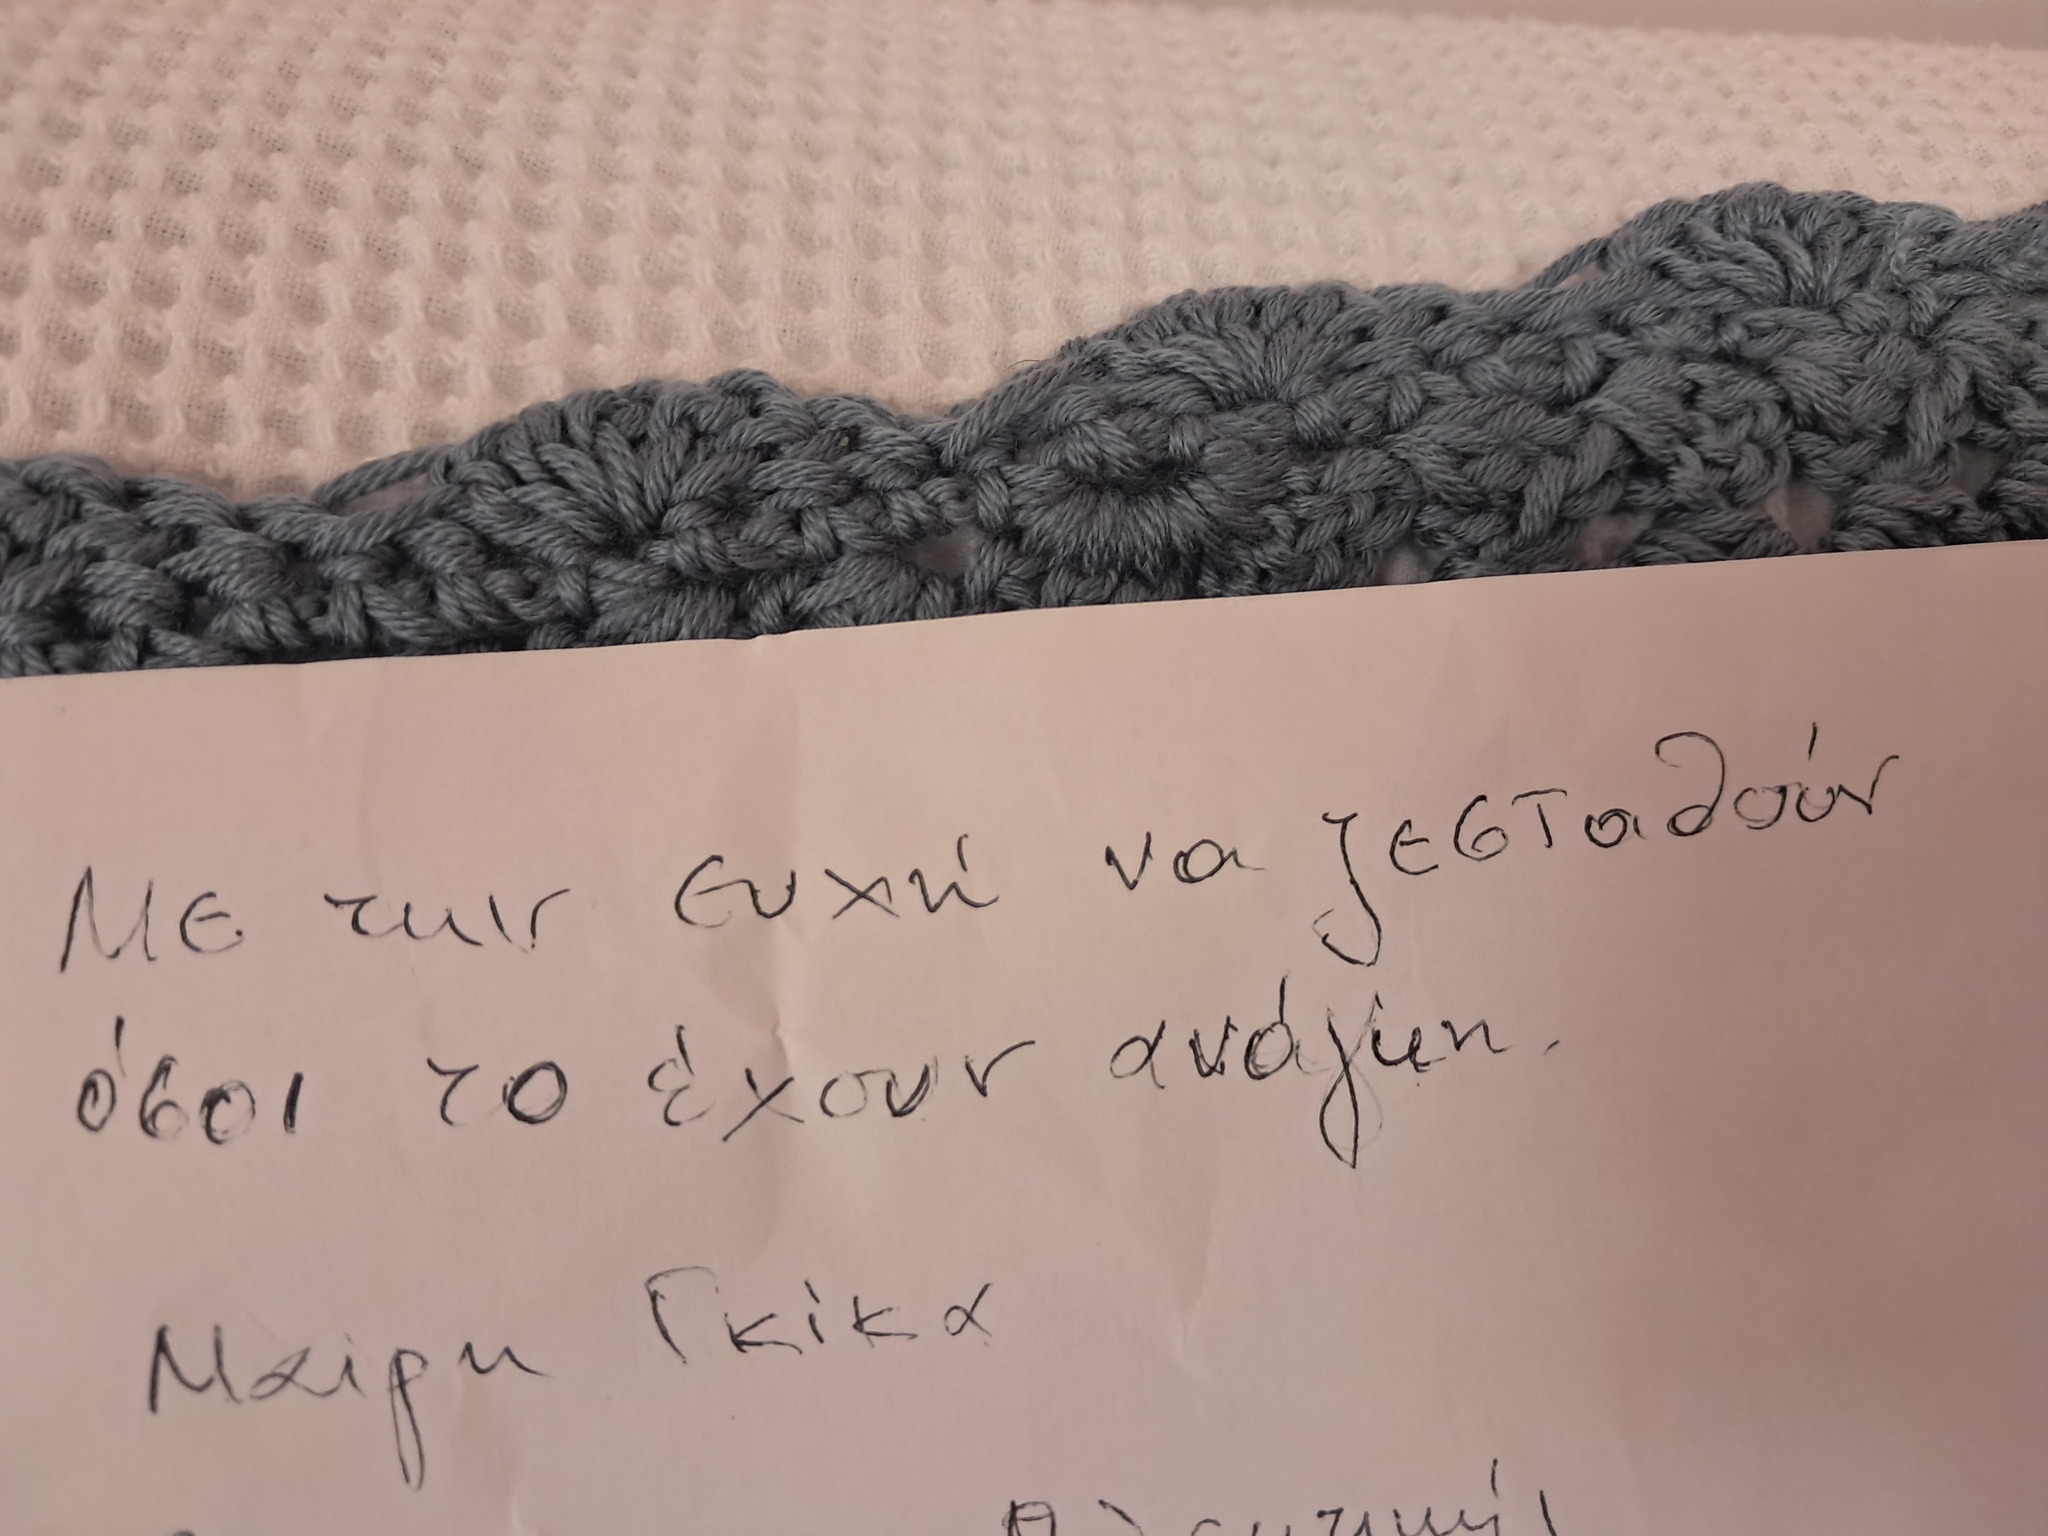 Με την ευχή να ζεσταθούν
όσοι το έχουν ανάγκη.
Μαίρη Γκίκα